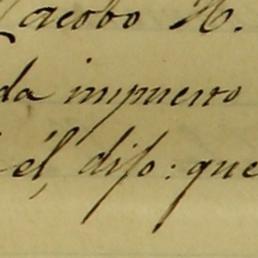 Jacobo N.
da impuesto
él, dijo: que